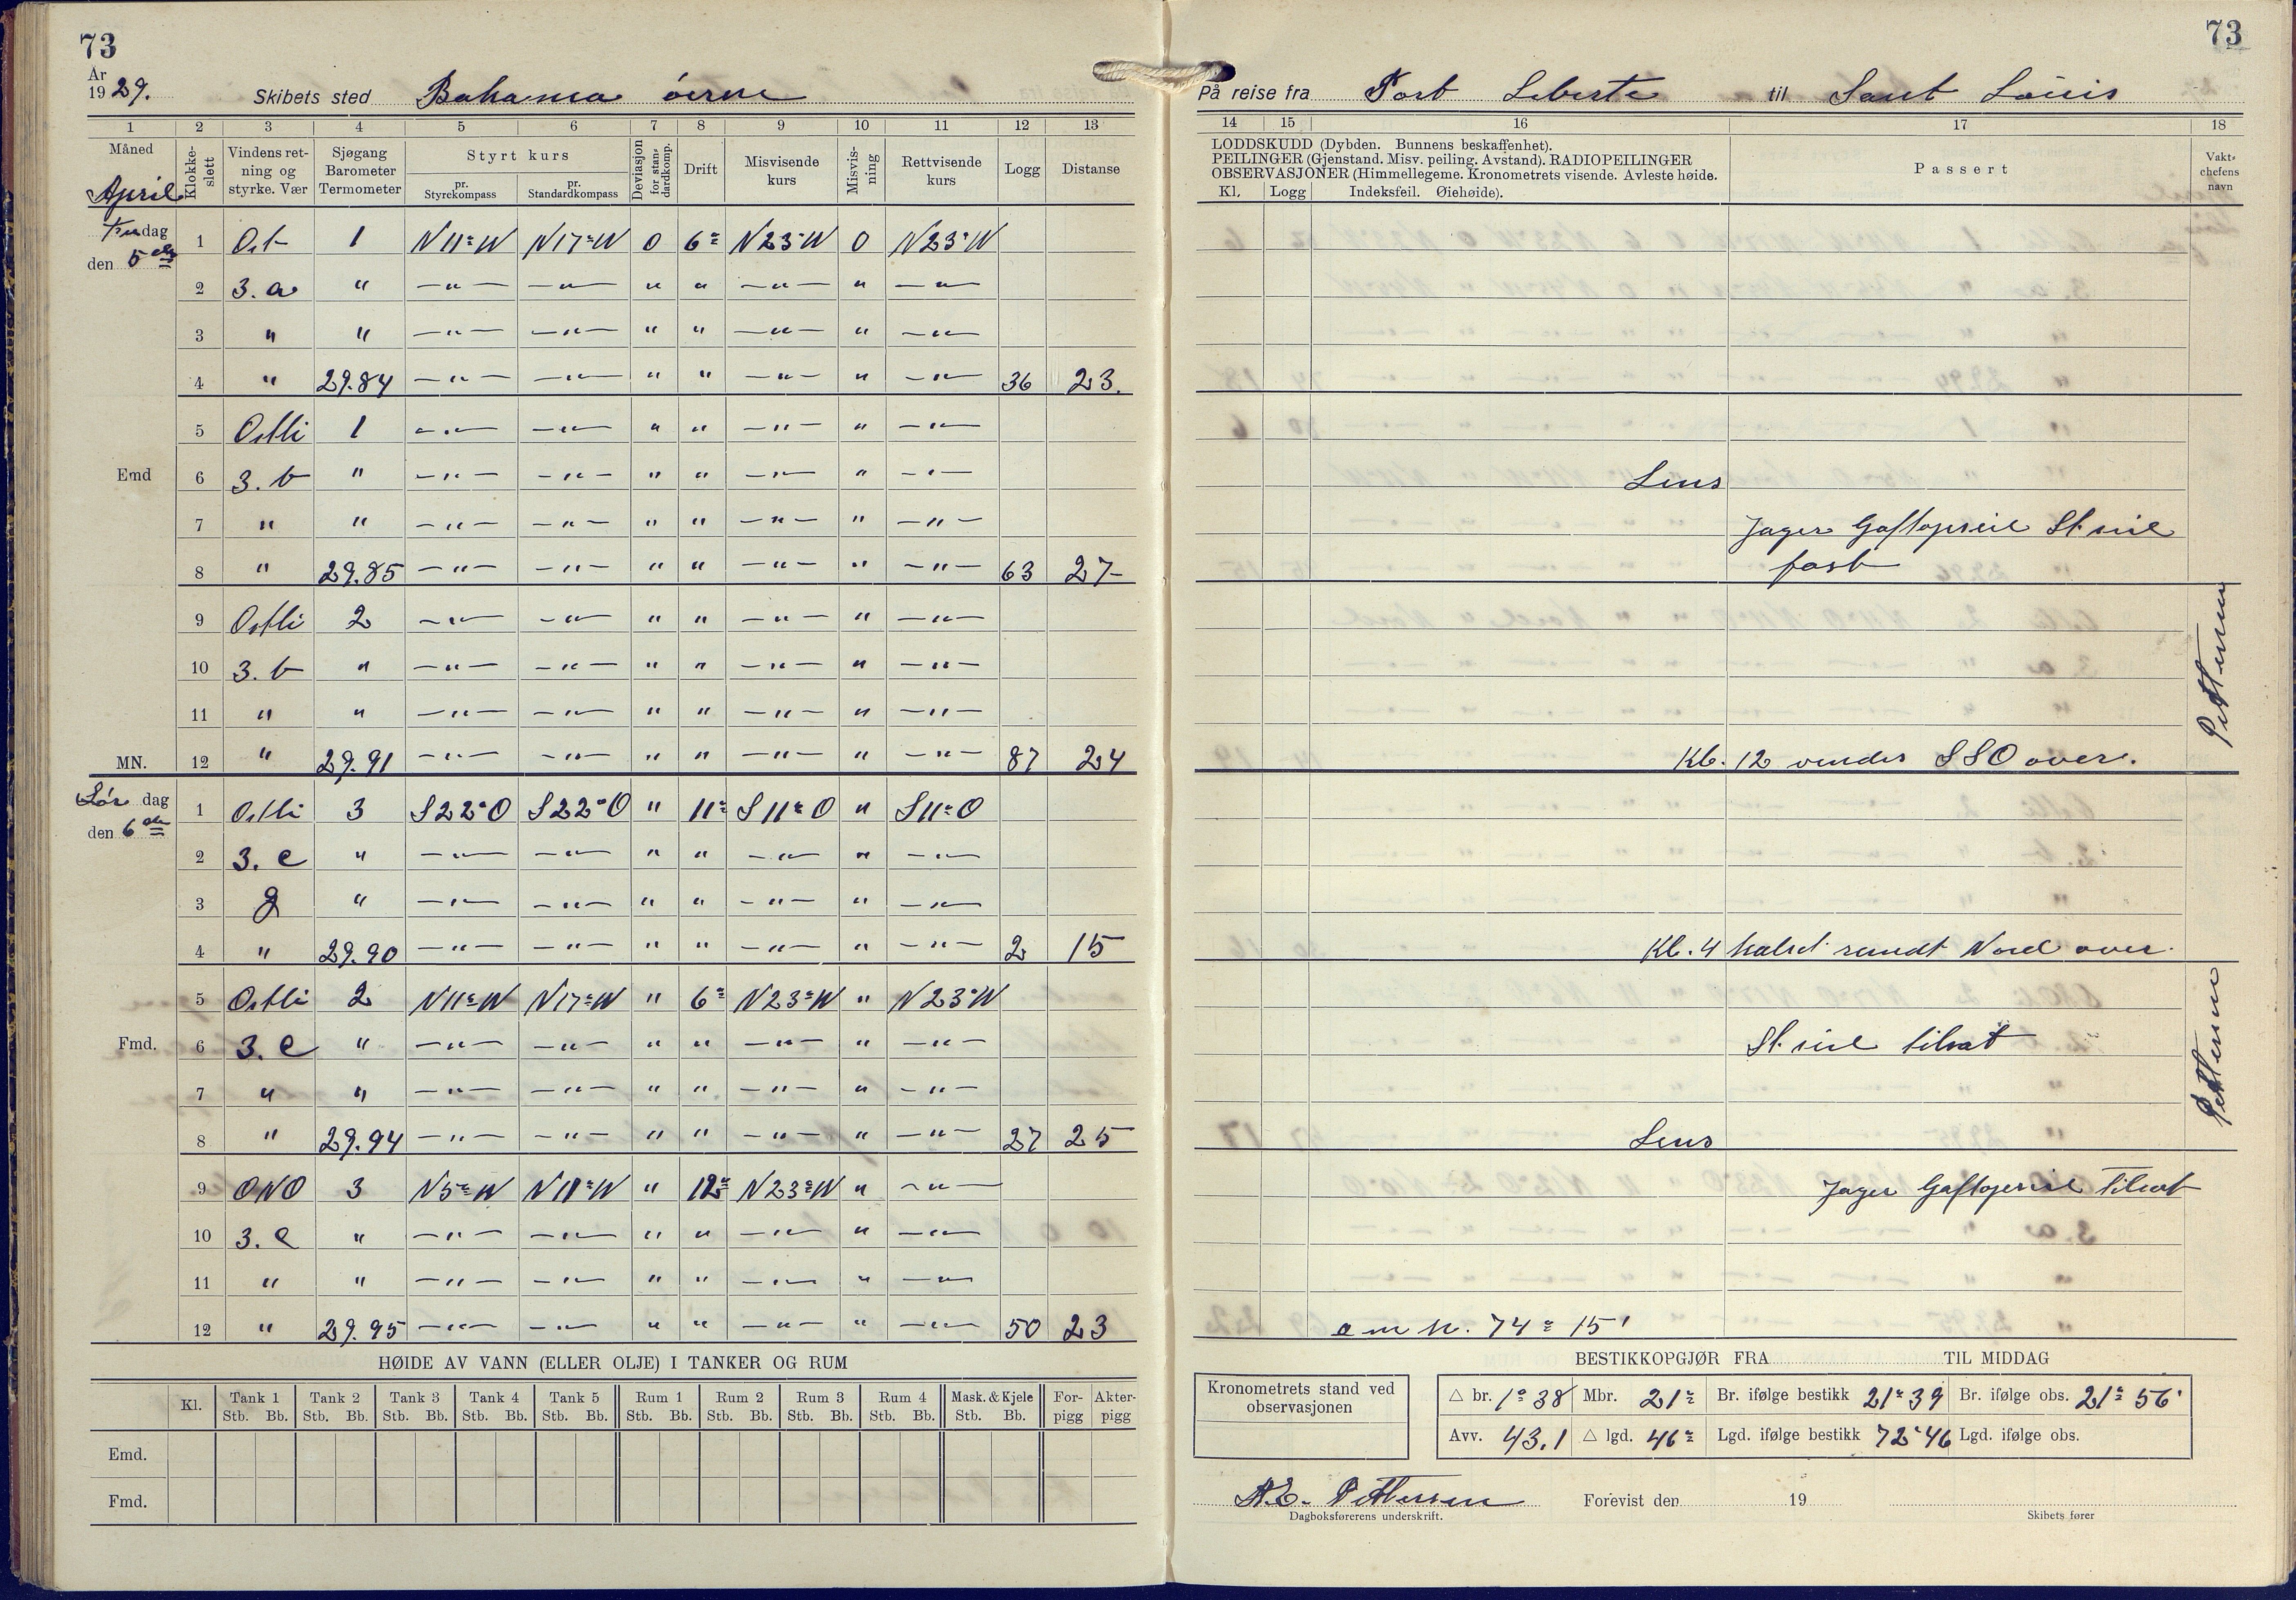 73
År
1929. Skibets sted Bahama öerne
1 2 3 4 5 6 7 8 9 10 11 12 13
Måned Klokkeslett Vindens retning og styrke. Vær Sjøgang Barometer Termometer Styrt kurs pr. Styrekompass pr. Standardkompass Deviasjon for standardkomp. Drift Misvisende kurs Misvisning Rettvisende kurs Logg Distanse
April
dag 1 Ost 1 N 11° W N 17° W 0 6° N 23° W 0 N 23° W
den 5 2 3. a " —"— —"— " " —"— " —"—
3 " " —"— —"— " " —"— " —"—
4 " 29.84 —"— —"— " " —"— " —"— 36 23.
5 Ostli 1 —"— —"— " " —"— " —"—
Emd 6 3. b " —"— —"— " " —"— " —"—
7 " " —"— —"— " " —"— " —"—
8 " 29.85 —"— —"— " " —"— " —"— 63 27
9 Ostli 2 —"— —"— " " —"— " —"—
10 3. b " —"— —"— " " —"— " —"—
11 " " —"— —"— " " —"— " —"—
MN. 12 " 29.91 —"— —"— " " —"— " —"— 87 24
Lör dag 1 Ostli 3 S 22° O S 22° O " 11° S 11° O " S 11° O
den 6 2 3. c " —"— —"— " " —"— " —"—
3 q " —"— —"— " " —"— " —"—
4 " 29.90 —"— —"— " " —"— " —"— 2 15
5 Ostli 2 N 11° W N 17° W " 6° N 23° W " N 23° W
Fmd. 6 3. c " —"— —"— " " —"— " —"—
7 " " —"— —"— " " —"— " —"—
8 " 29.94 —"— —"— " " —"— " —"— 27 25
9 ONO 3 N 5° W N 11° W " 12° N 23° W " —"—
10 3. c " —"— —"— " " —"— " —"—
11 " " —"— —"— " " —"— " —"—
12 " 29.95 —"— —"— " " —"— " —"— 50 23
HØIDE AV VANN (ELLER OLJE) I TANKER OG RUM
Kl. Tank 1 Tank 2 Tank 3 Tank 4 Tank 5 Rum 1 Rum 2 Rum 3 Rum 4 Mask. & Kjele For- Akter-
Stb. Bb. Stb. Bb. Stb. Bb. Stb. Bb. Stb. Bb. Stb. Bb. Stb. Bb. Stb. Bb. Stb. Bb. Stb. Bb. pigg pigg
Emd.
Fmd.
73
På reise fra Port Liberte til Sant Louis
14 15 16 17 18
LODDSKUDD (Dybden. Bunnens beskaffenhet).
PEILINGER (Gjenstand. Misv. peiling. Avstand). RADIOPEILINGER
OBSERVASJONER (Himmellegeme. Kronometrets visende. Avleste høide.
Kl. Logg Indeksfeil. Øiehøide).
Passert
Vakt-
chefens
navn
Lens
Jager Gaftopseil St. seil
fast
Kl. 12 vendes SSO over.
Pettersen
Kl. 4 halset rundt Nord over
St. seil tilsat
Pettersen
Lens
Jager Gaftopseil tilsat
o m h. 74° 15'
BESTIKKOPGJØR FRA TIL MIDDAG
Kronometrets stand ved
observasjonen
△ br. 1° 38 Mbr. 21° Br. ifølge bestikk 21° 39 Br. ifølge obs. 21° 56'
Avv. 43.1 △ lgd. 46° Lgd. ifølge bestikk 72° 46 Lgd. ifølge obs.
Pettersen Forevist den 19
Dagboksførerens underskrift. Skibets fører